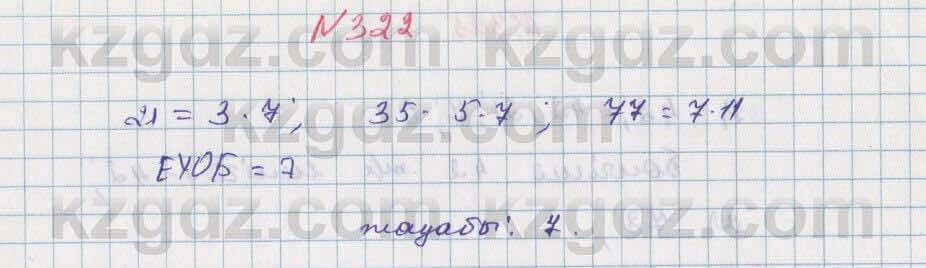 №322
21 = 3 · 7; 35 = 5 · 7 ; 77 = 7 · 11
ЕҮОБ = 7
жауабы: 7.
kzgdz.com kzgdz.com
kzgdz.com kzgdz.com
kzgdz.com kzgdz.com